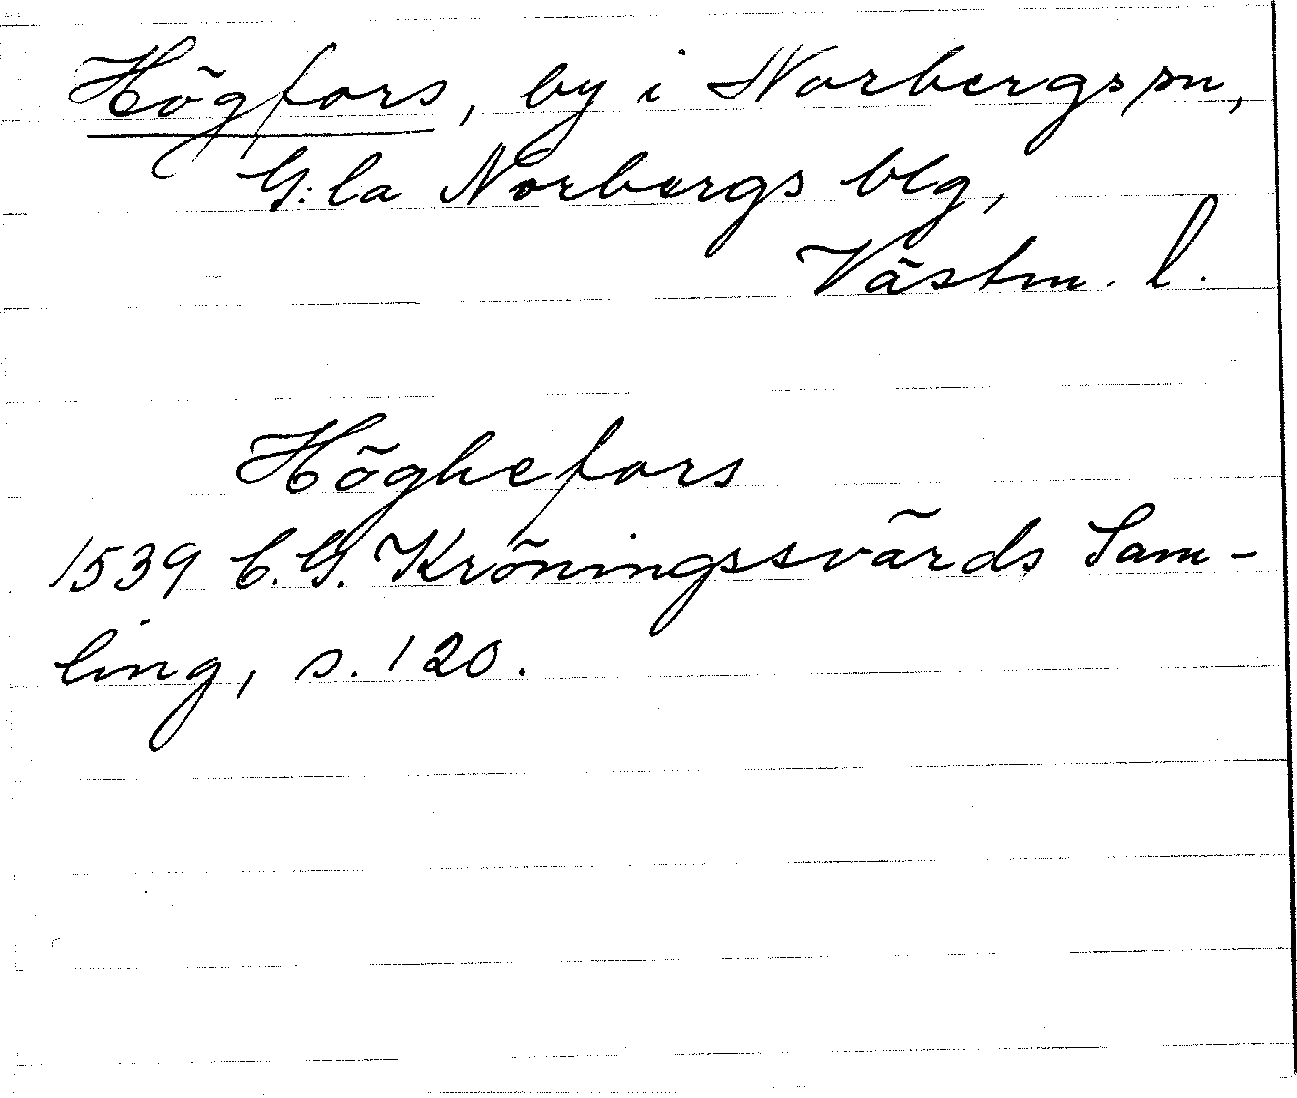 Högfors, by i Norbergs sn,
G:la Norbergs blg,
Västm. l.
Höghefors
1539 C.G. Kröningssvärds Sam-
ling, s. 120.